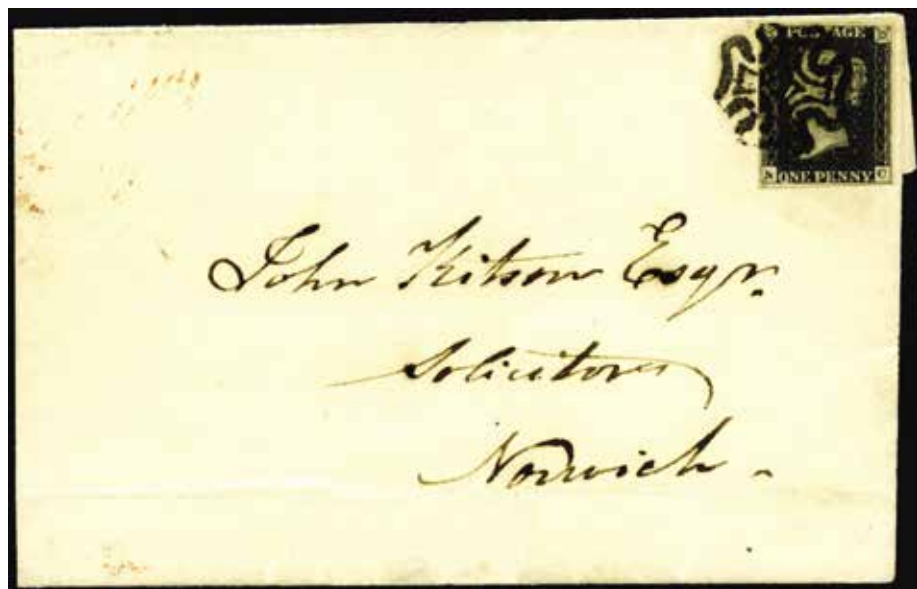 POSTAGE
ONE PENNY
John Kitson Esqr.
Solicitor
Norwich